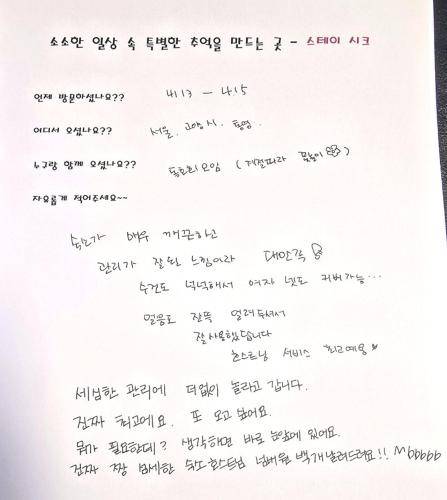 소소한 일상 속 특별한 추억을 만드는 곳 - 스테이 시크
언제 방문하셨나요??
4/13 - 4/15
어디서 오셨나요??
서울, 고양시, 통영.
누구랑 함께 오셨나요??
동호회모임 (계절따라 꽃놀이)
자유롭게 적어주세요~~
숙소가 매우 깨끗하고
관리가 잘 된 느낌이라 대만족
수건도 넉넉해서 여자 넷도 커버가능...
얼음도 잔뜩 얼려두셔서
잘 사용했답니다
호스트님 서비스 최고예용
세심한 관리에 더없이 놀라고 갑니다.
진짜 최고에요. 또 오고 싶어요.
뭐가 필요한데? 생각하면 바로 눈앞에 있어요.
진짜 짱 섬세한 숙소 호스트님 넘버원 백개 날려드려요!! Mbbbbb